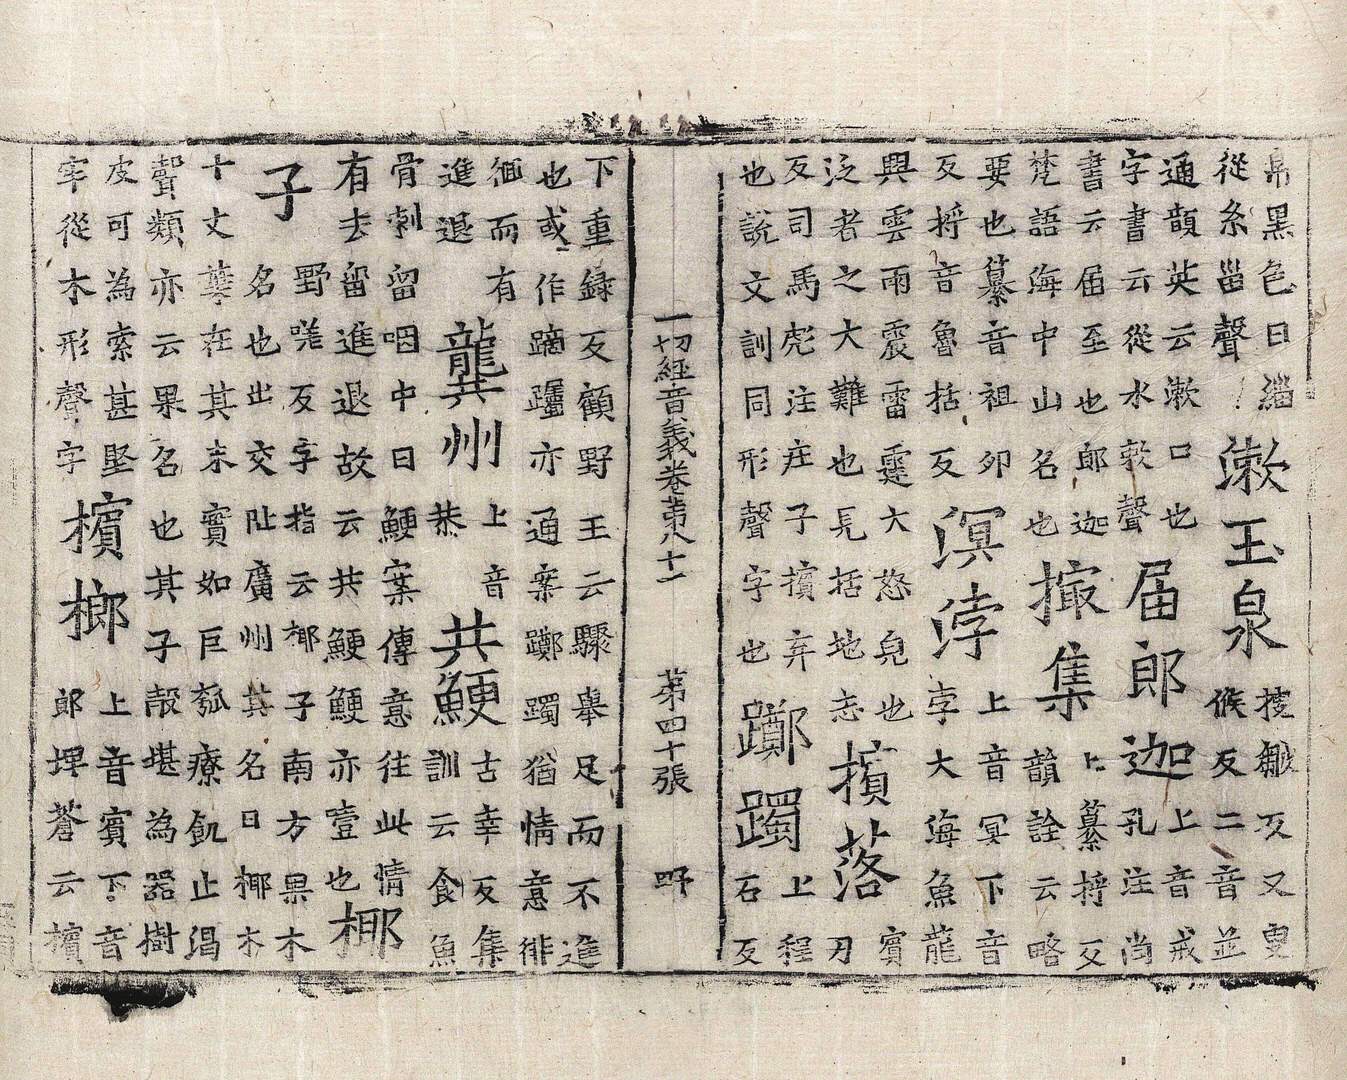 帛黑色曰緇
從糸甾聲
漱玉泉
搜皺反又叟
候反二音並
通韻英云漱口也
字書云從水欶聲
届郎迦
上音戒
孔注尚
書云届至也郎迦
梵語海中山名也
撮集
上纂捋反
韻詮云略
要也纂音祖卯
反捋音魯括反
溟浡
上音冥下音
孛大海魚龍
興雲雨震雷霆大怒皃也
泛者之大難也見括地志
擯落
賓
刃
反司馬彪注庄子擯弃
也說文訓同形聲字也
躑躅
上程
石反
一切經音義卷第八十一 第四十張 野
下重録反顧野王云驟舉足而不進
也或作蹢䠱亦通案躑躅猶情意徘
徊而有
進退
龔州
上音
恭
共鯁
古幸反集
訓云食魚
骨刺留咽中曰鯁案傳意往此情
有去留進退故云共鯁鯁亦噎也
椰
子
野嗟反字指云椰子南方果木
名也出交阯廣州其名曰椰木
十丈葉在其末實如巨瓠療飢止渴
聲類亦云果名也其子殻堪為器樹
皮可為索甚堅
牢從木形聲字
檳榔
上音賓下音
郎埤蒼云檳